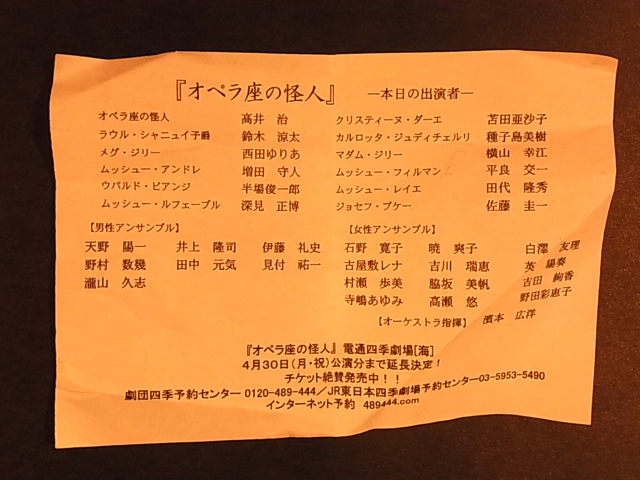 『オペラ座の怪人』 ―本日の出演者―
オペラ座の怪人 高井 治 クリスティーヌ・ダーエ 苫田亜沙子
ラウル・シャニュイ子爵 鈴木 涼太 カルロッタ・ジュディチェルリ 種子島美樹
メグ・ジリー 西田ゆりあ マダム・ジリー 横山 幸江
ムッシュー・アンドレ 増田 守人 ムッシュー・フィルマン 平良 交一
ウバルド・ピアンジ 半場俊一郎 ムッシュー・レイエ 田代 隆秀
ムッシュー・ルフェーブル 深見 正博 ジョセフ・ブケー 佐藤 圭一
【男性アンサンブル】 【女性アンサンブル】
天野 陽一 井上 隆司 伊藤 礼史 石野 寛子 暁 爽子 白澤 友理
野村 数幾 田中 元気 見付 祐一 古屋敷レナ 吉川 瑞恵 英 陽奏
瀧山 久志 村瀬 歩美 脇坂 美帆 吉田 絢香
寺嶋あゆみ 高瀬 悠 野田彩恵子
【オーケストラ指揮】 濱本 広洋
『オペラ座の怪人』電通四季劇場[海]
4月30日(月・祝)公演分まで延長決定!
チケット絶賛発売中!!
劇団四季予約センター 0120-489-444/JR東日本四季劇場予約センター03-5953-5490
インターネット予約 489444.com